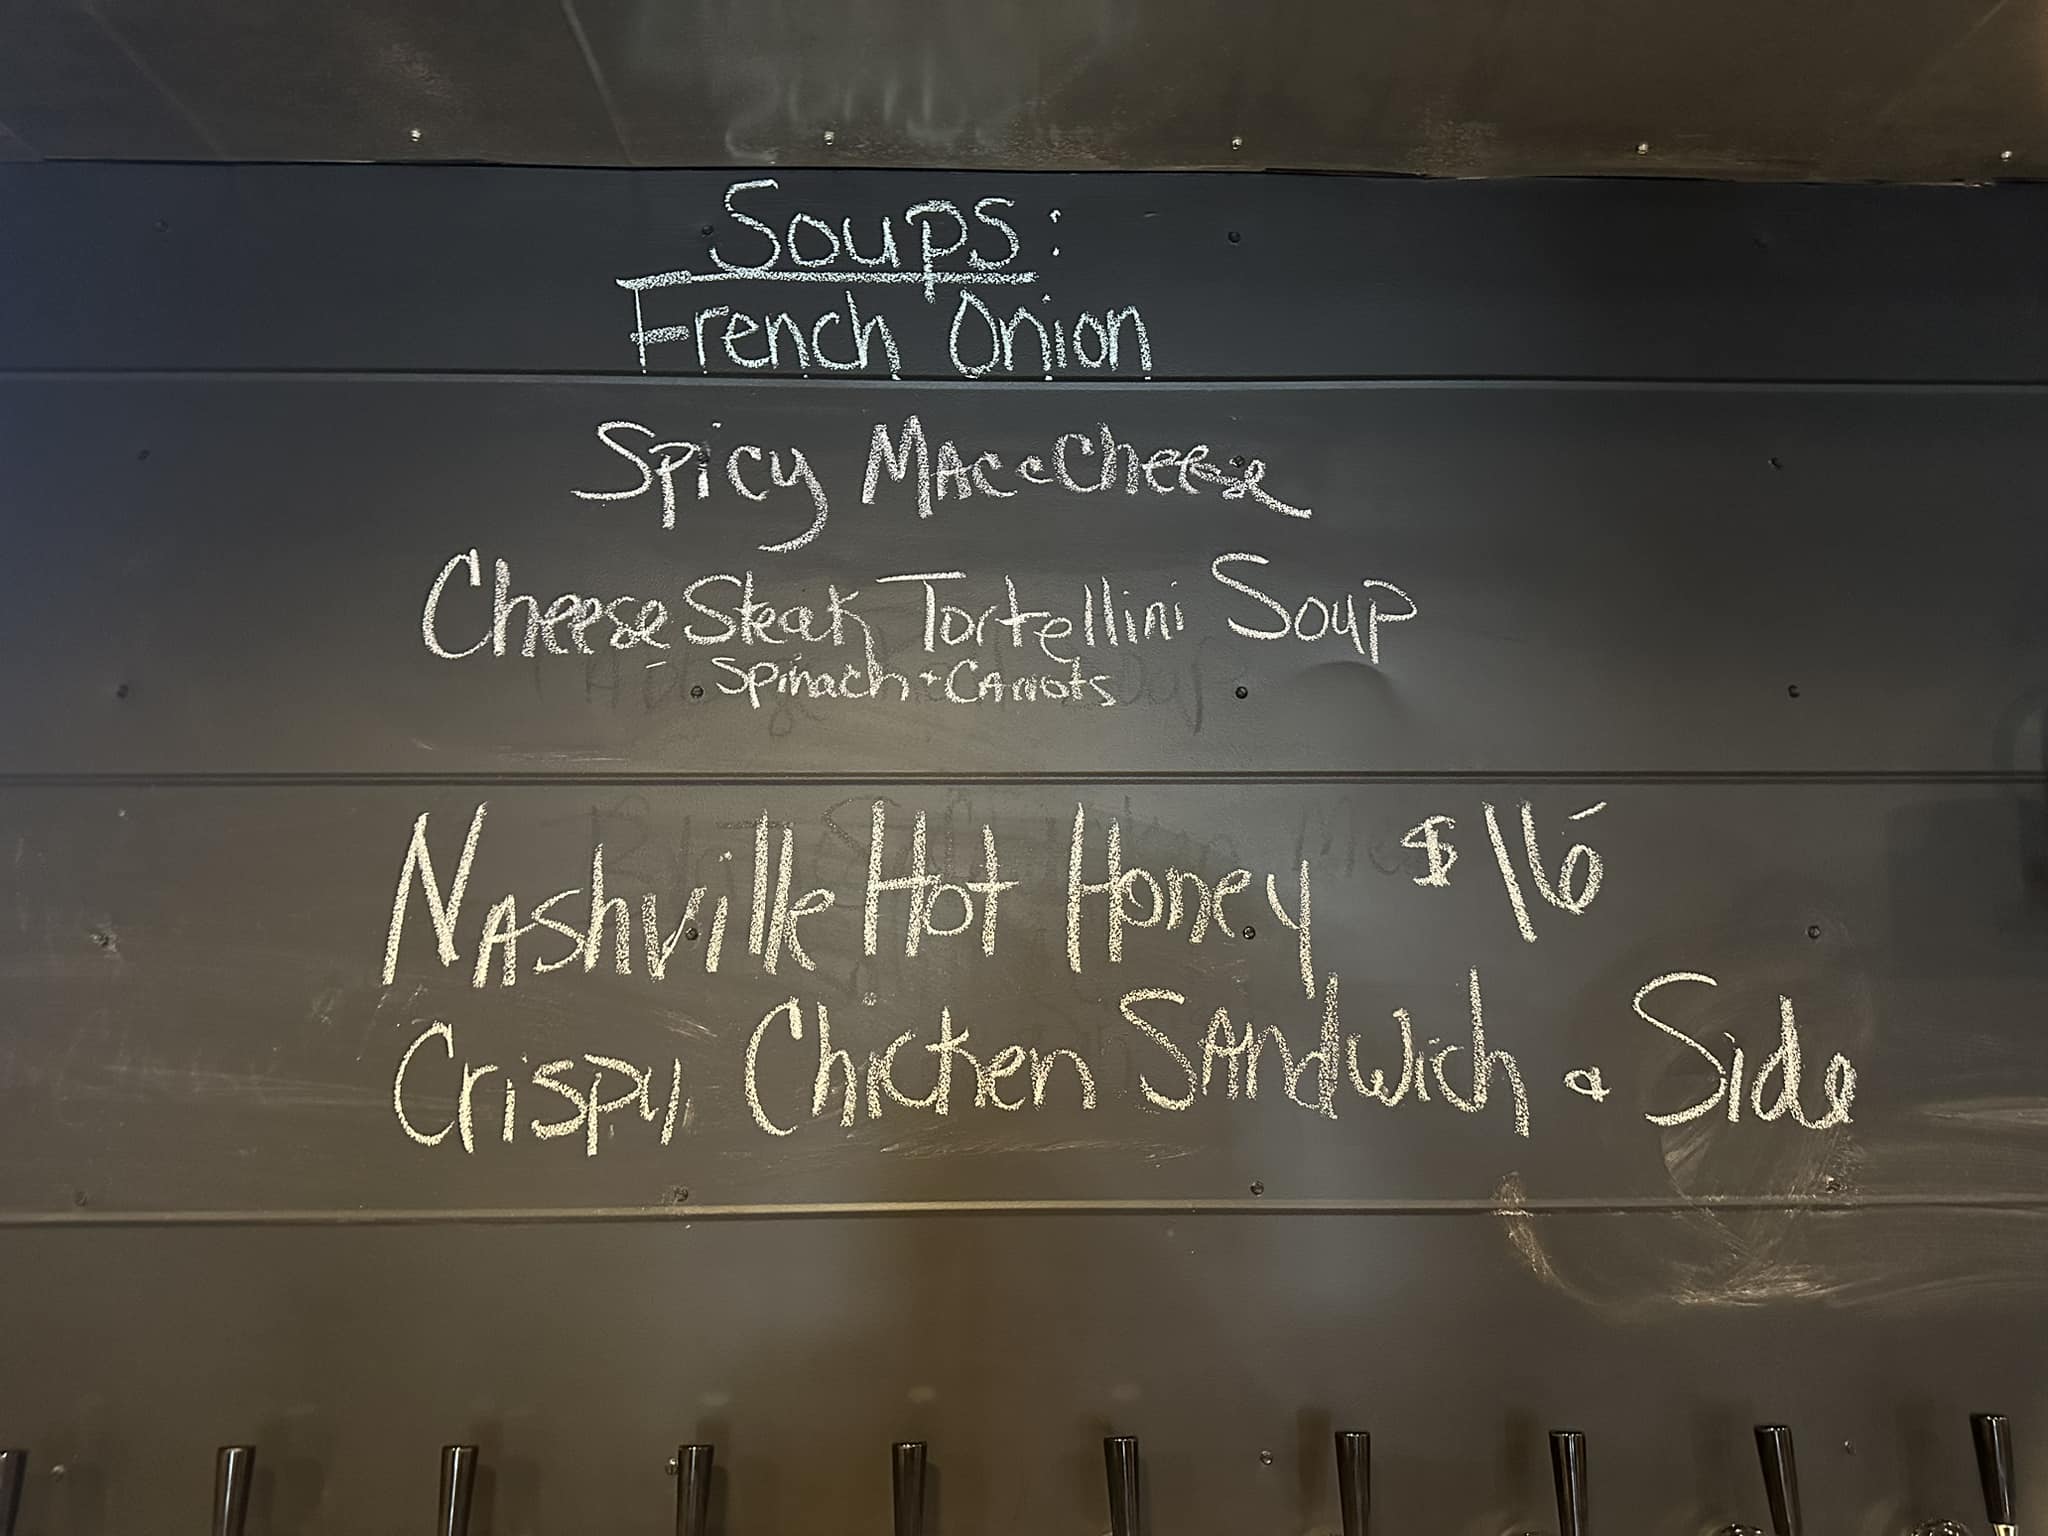 Soups:
French Onion
Spicy Mac & Cheese
Cheese Steak Tortellini Soup
- Spinach + Carrots
Nashville Hot Honey $16
Crispy Chicken Sandwich & Side